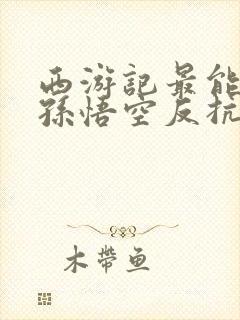 西游記最能
孫悟空反抗
木帶魚